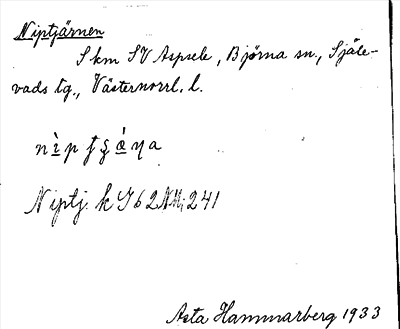 Niptjärnen
5 km SV Aspsele, Björna sn., Själe-
vads tg., Västernorrl. l.
Niptj. k 962 NV; 241
Asta Hammarberg 1933